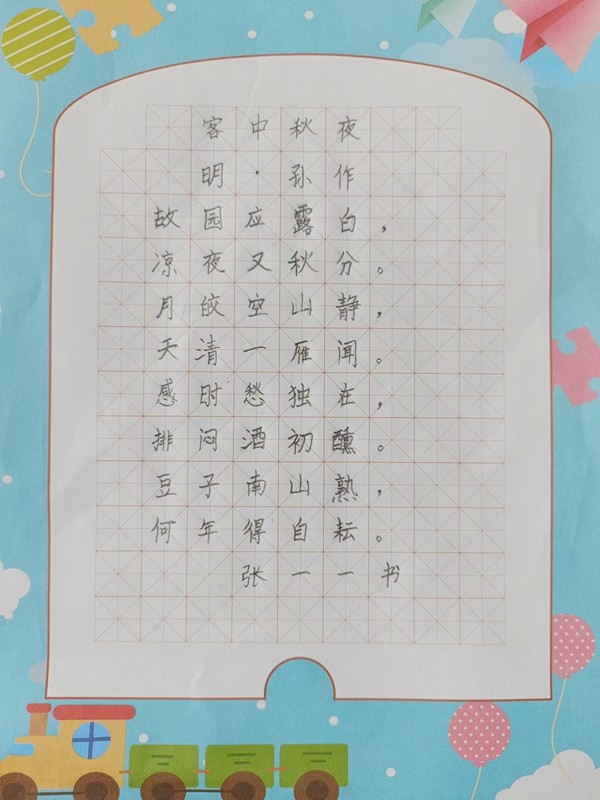 客中秋夜
明·孙作
故园应露白，
凉夜又秋分。
月皎空山静，
天清一雁闻。
感时愁独在，
排闷酒初醺。
豆子南山熟，
何年得自耘。
张一一书